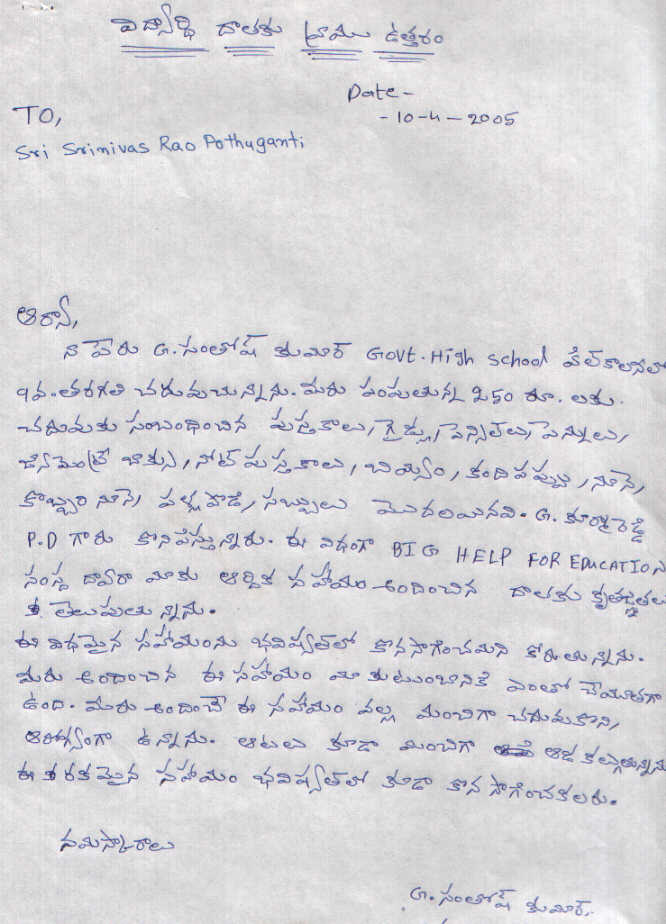 విద్యార్థి దాతకు వ్రాయు ఉత్తరం
Date-
-10-4-2005
TO,
Sri Srinivas Rao Pothuganti
ఆర్యా,
నా పేరు G.సంతోష్ కుమార్ Govt.High school హిల్ కాలనిలో
9వ.తరగతి చదువుచున్నాను. మీరు పంపుతున్న 250 రూ. లకు
చదువుకు సంబంధించిన పుస్తకాలు, గైడ్లు, పెన్సిల్లు, పెన్నులు,
జామెంట్రి బాక్సు, నోట్ పుస్తకాలు, బియ్యం, కందిపప్పు, నూనె,
కొబ్బరి నూనె, పళ్ళపొడి, సబ్బులు మొదలయినవి. G. కూర్మారెడ్డి
P.D గారు కొనిపిస్తున్నారు. ఈ విధంగా BIG HELP FOR EDUCATION
సంస్థ ద్వారా మాకు ఆర్థిక సహాయం అందించిన దాతకు కృతజ్ఞతలు
తెలుపుతున్నాను.
ఈ విధమైన సహాయంను భవిష్యత్ లో కొనసాగించమని కోరుతున్నాను.
మీరు అందించిన ఈ సహాయం మా కుటుంబానికి ఎంతో చేయూతగా
ఉంది. మీరు అందించే ఈ సహాయం వల్ల మంచిగా చదువుకొని,
ఆరోగ్యంగా ఉన్నాను. ఆటలు కూడా మంచిగా ఆడ కల్గుతున్నాను
ఈ రకమైన సహాయం భవిష్యత్ లో కూడా కొన సాగించకలరు.
నమస్కారాలు
G. సంతోష్ కుమార్.